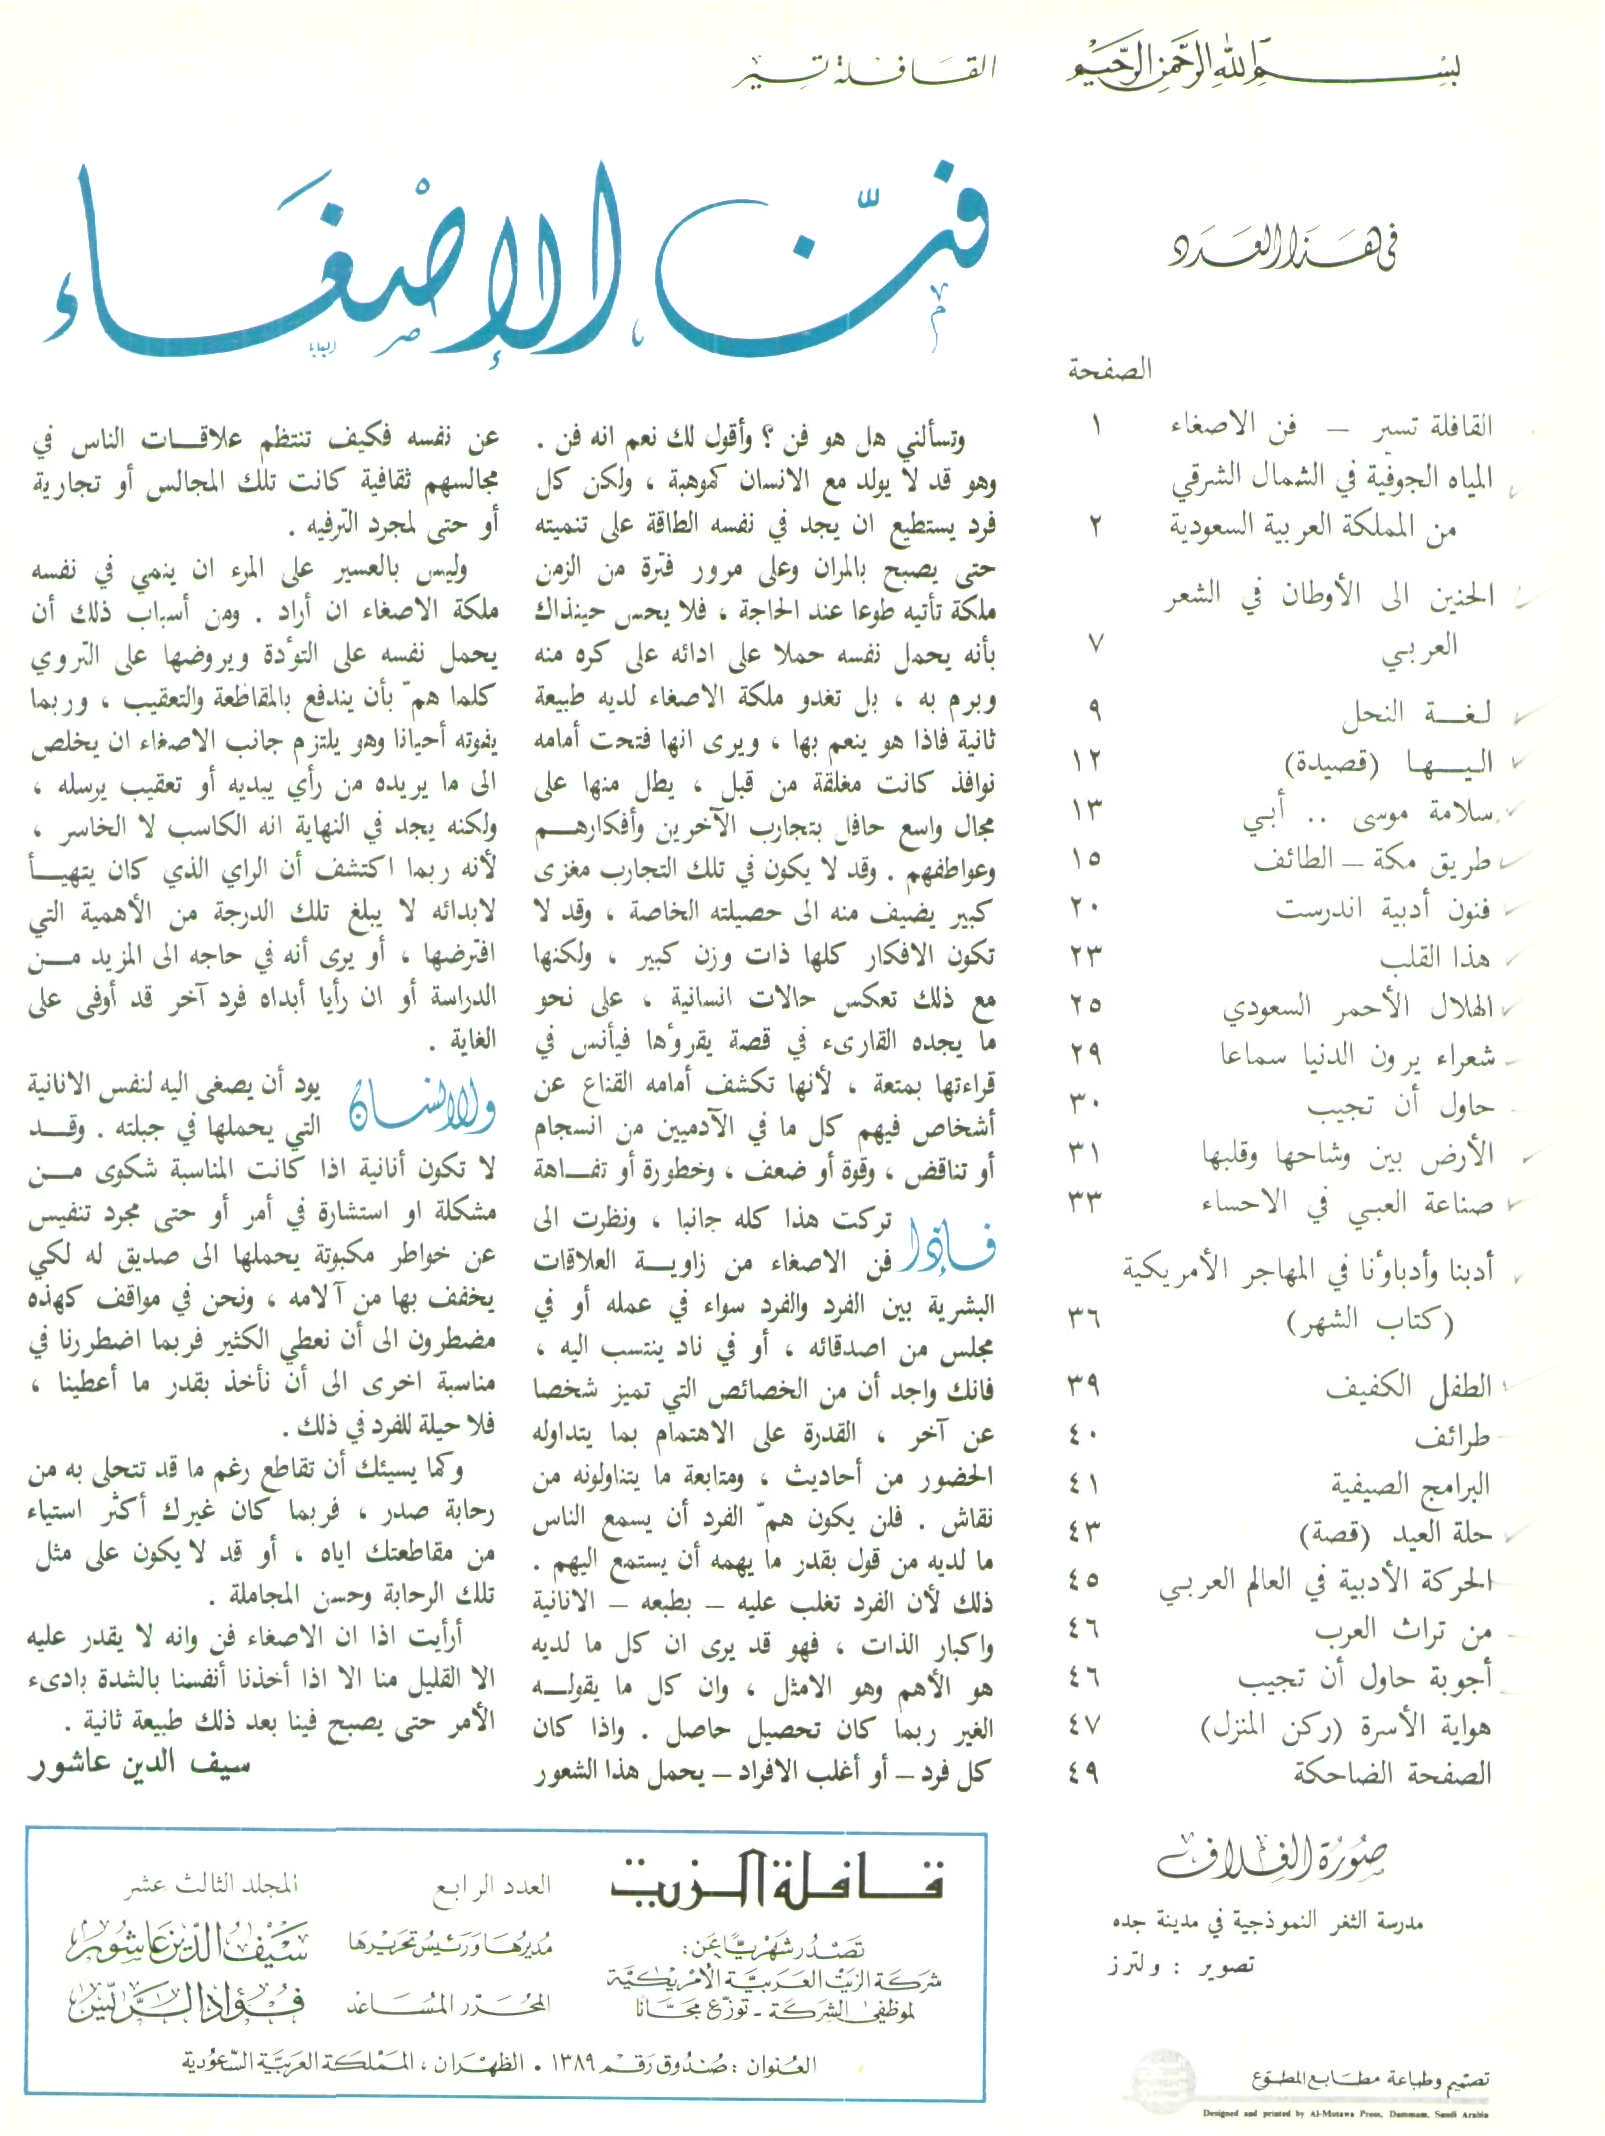 بسم الله الرحمن الرحيم
القافلة تسير
فن الإصغاء
في هذا العدد
الصفحة
القافلة تسير – فن الاصغاء ١
المياه الجوفية في الشمال الشرقي
من المملكة العربية السعودية ٢
الحنين الى الأوطان في الشعر
العربي ٧
لغة النحل ٩
اليها (قصيدة) ١٢
سلامة موسى .. أبي ١٣
طريق مكة – الطائف ١٥
فنون أدبية اندرست ٢٠
هذا القلب ٢٣
الهلال الأحمر السعودي ٢٥
شعراء يرون الدنيا سماعا ٢٩
حاول أن تجيب ٣٠
الأرض بين وشاحها وقلبها ٣١
صناعة العبي في الاحساء ٣٣
أدبنا وأدباؤنا في المهاجر الأمريكية
(كتاب الشهر) ٣٦
الطفل الكفيف ٣٩
طرائف ٤٠
البرامج الصيفية ٤١
حلة العيد (قصة) ٤٣
الحركة الأدبية في العالم العربي ٤٥
من تراث العرب ٤٦
أجوبة حاول أن تجيب ٤٦
هواية الأسرة (ركن المنزل) ٤٧
الصفحة الضاحكة ٤٩
صورة الغلاف
مدرسة الثغر النموذجية في مدينة جده
تصوير : ولترز
تصميم وطباعة مطابع المطوع
Designed and printed by Al-Mutawa Press, Dammam, Saudi Arabia
وتسألني هل هو فن ؟ وأقول لك نعم انه فن .
وهو قد لا يولد مع الانسان كموهبة ، ولكن كل
فرد يستطيع ان يجد في نفسه الطاقة على تنميته
حتى يصبح بالمران وعلى مرور فترة من الزمن
ملكة تأتيه طوعا عند الحاجة ، فلا يحس حينذاك
بأنه يحمل نفسه حملا على ادائه على كره منه
وبرم به ، بل تغدو ملكة الاصغاء لديه طبيعة
ثانية فاذا هو ينعم بها ، ويرى انها فتحت أمامه
نوافذ كانت مغلقة من قبل ، يطل منها على
مجال واسع حافل بتجارب الآخرين وأفكارهم
وعواطفهم . وقد لا يكون في تلك التجارب مغزى
كبير يضيف منه الى حصيلته الخاصة ، وقد لا
تكون الافكار كلها ذات وزن كبير ، ولكنها
مع ذلك تعكس حالات انسانية ، على نحو
ما يجده القارىء في قصة يقرؤها فيأنس في
قراءتها بمتعة ، لأنها تكشف أمامه القناع عن
أشخاص فيهم كل ما في الآدميين من انسجام
أو تناقض ، وقوة أو ضعف ، وخطورة أو تفاهة
فإذا تركت هذا كله جانبا ، ونظرت الى
فن الاصغاء من زاوية العلاقات
البشرية بين الفرد والفرد سواء في عمله أو في
مجلس من اصدقائه ، أو في ناد ينتسب اليه ،
فانك واجد أن من الخصائص التي تميز شخصا
عن آخر ، القدرة على الاهتمام بما يتداوله
الحضور من أحاديث ، ومتابعة ما يتناولونه من
نقاش . فلن يكون همّ الفرد أن يسمع الناس
ما لديه من قول بقدر ما يهمه أن يستمع اليهم .
ذلك لأن الفرد تغلب عليه – بطبعه – الانانية
واكبار الذات ، فهو قد يرى ان كل ما لديه
هو الأهم وهو الامثل ، وان كل ما يقوله
الغير ربما كان تحصيل حاصل . واذا كان
كل فرد – أو أغلب الافراد – يحمل هذا الشعور
عن نفسه فكيف تنتظم علاقات الناس في
مجالسهم ثقافية كانت تلك المجالس أو تجارية
أو حتى لمجرد الترفيه .
وليس بالعسير على المرء ان ينمي في نفسه
ملكة الاصغاء ان أراد . ومن أسباب ذلك أن
يحمل نفسه على التؤدة ويروضها على التروي
كلما همّ بأن يندفع بالمقاطعة والتعقيب ، وربما
يفوته أحيانا وهو يلتزم جانب الاصغاء ان يخلص
الى ما يريده من رأي يبديه أو تعقيب يرسله ،
ولكنه يجد في النهاية انه الكاسب لا الخاسر ،
لأنه ربما اكتشف أن الراي الذي كان يتهيأ
لابدائه لا يبلغ تلك الدرجة من الأهمية التي
افترضها ، أو يرى أنه في حاجه الى المزيد من
الدراسة أو ان رأيا أبداه فرد آخر قد أوفى على
الغاية .
والانسان يود أن يصغى اليه لنفس الانانية
التي يحملها في جبلته . وقد
لا تكون أنانية اذا كانت المناسبة شكوى من
مشكلة او استشارة في أمر أو حتى مجرد تنفيس
عن خواطر مكبوتة يحملها الى صديق له لكي
يخفف بها من آلامه ، ونحن في مواقف كهذه
مضطرون الى أن نعطي الكثير فربما اضطررنا في
مناسبة اخرى الى أن نأخذ بقدر ما أعطينا ،
فلا حيلة للفرد في ذلك .
وكما يسيئك أن تقاطع رغم ما قد تتحلى به من
رحابة صدر ، فربما كان غيرك أكثر استياء
من مقاطعتك اياه ، أو قد لا يكون على مثل
تلك الرحابة وحسن المجاملة .
أرأيت اذا ان الاصغاء فن وانه لا يقدر عليه
الا القليل منا الا اذا أخذنا أنفسنا بالشدة بادىء
الأمر حتى يصبح فينا بعد ذلك طبيعة ثانية .
سيف الدين عاشور
قافلة الزيت
العدد الرابع
المجلد الثالث عشر
تصدر شهريًا عن:
شركة الزيت العربية الأمريكية
لموظفي الشركة - توزع مجانا
مديرها ورئيس تحريرها سيف الدين عاشور
المحرر المساعد فؤاد الريس
العنوان : صندوق رقم ١٣٨٩ . الظهران ، المملكة العربية السعودية